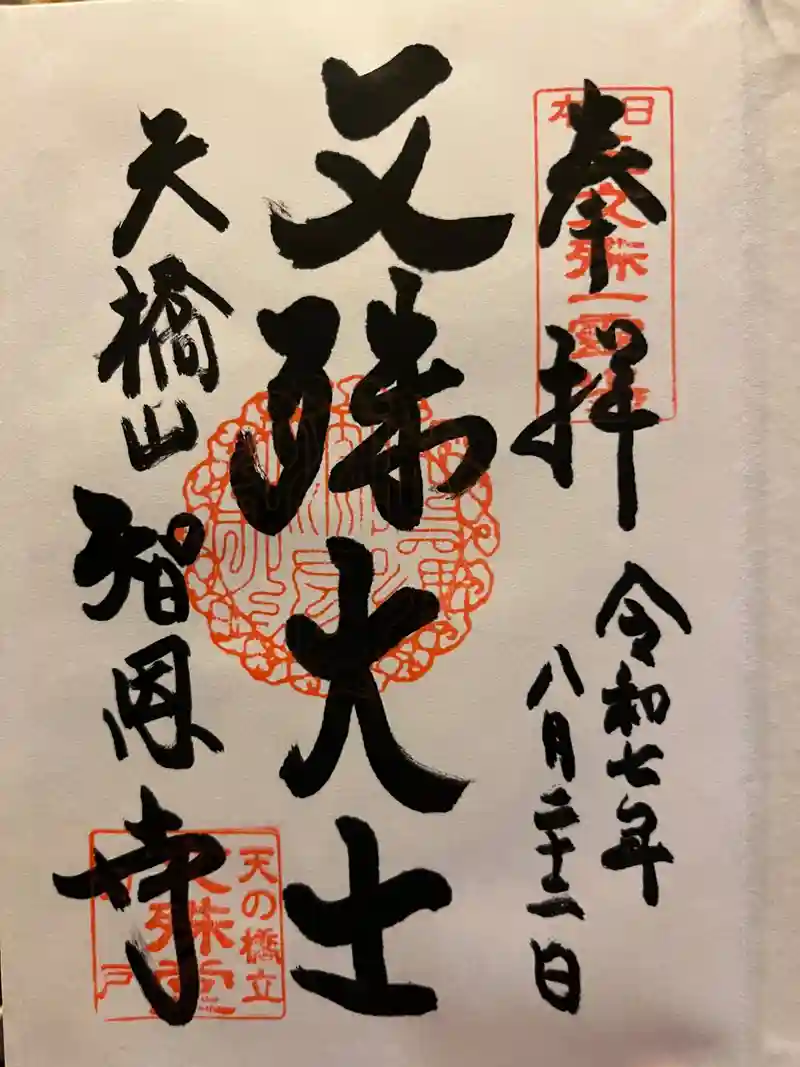 奉拝
令和七年
八月二十二日
文殊大士
天橋山
智恩寺
日本
文殊一霊
天の橋立
文殊堂